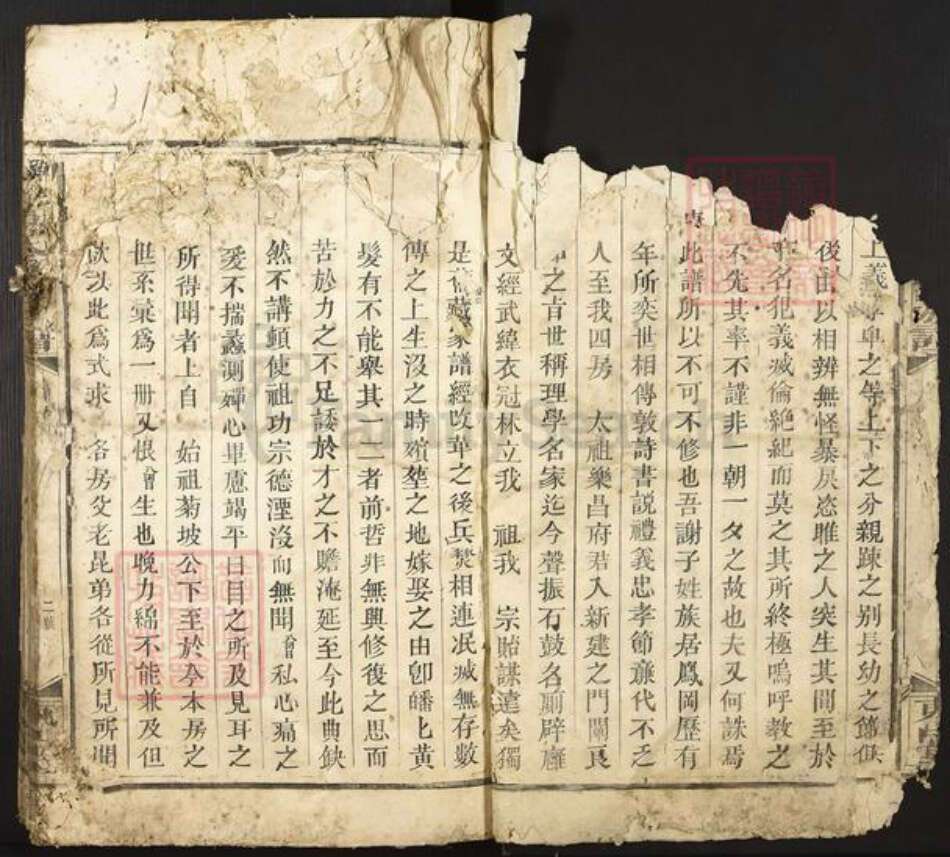 上義尊卑之等上下之分親踈之别長幼之節俱
後由以相辨無怪暴戾恣睢之人突生其間至於
名犯義滅倫絶紀而莫之其所終極嗚呼教之
不先其率不謹非一朝一夕之故也夫又何誅焉
此譜所以不可不修也吾謝子姓族居鳳岡歷有
年所奕世相傳敦詩書說禮義忠孝節亷代不乏
人至我四房 太祖樂昌府君入新建之門閫良
之肯世稱理學名家迄今聲振石鼓名蜚辟廱
文經武緯衣冠林立我 祖我 宗貽謀遠矣獨
是舊藏家譜經改革之後兵焚相連泯滅無存數
傳之上生沒之時殯塟之地嫁娶之由卽皤匕黄
髮有不能舉其一二者前哲非無興修復之思而
苦於力之不足諉於才之不贍淹延至今此典缺
然不講頓使祖功宗德湮沒而無聞曾私心痛之
爰不揣蠡測殫心畢慮竭平日目之所及見耳之
所得聞者上自 始祖菊坡公下至於今本房之
世系彚爲一册又恨曾生也晚力綿不能兼及但
欲以此爲式求 各房父老昆弟各從所見所聞
二號